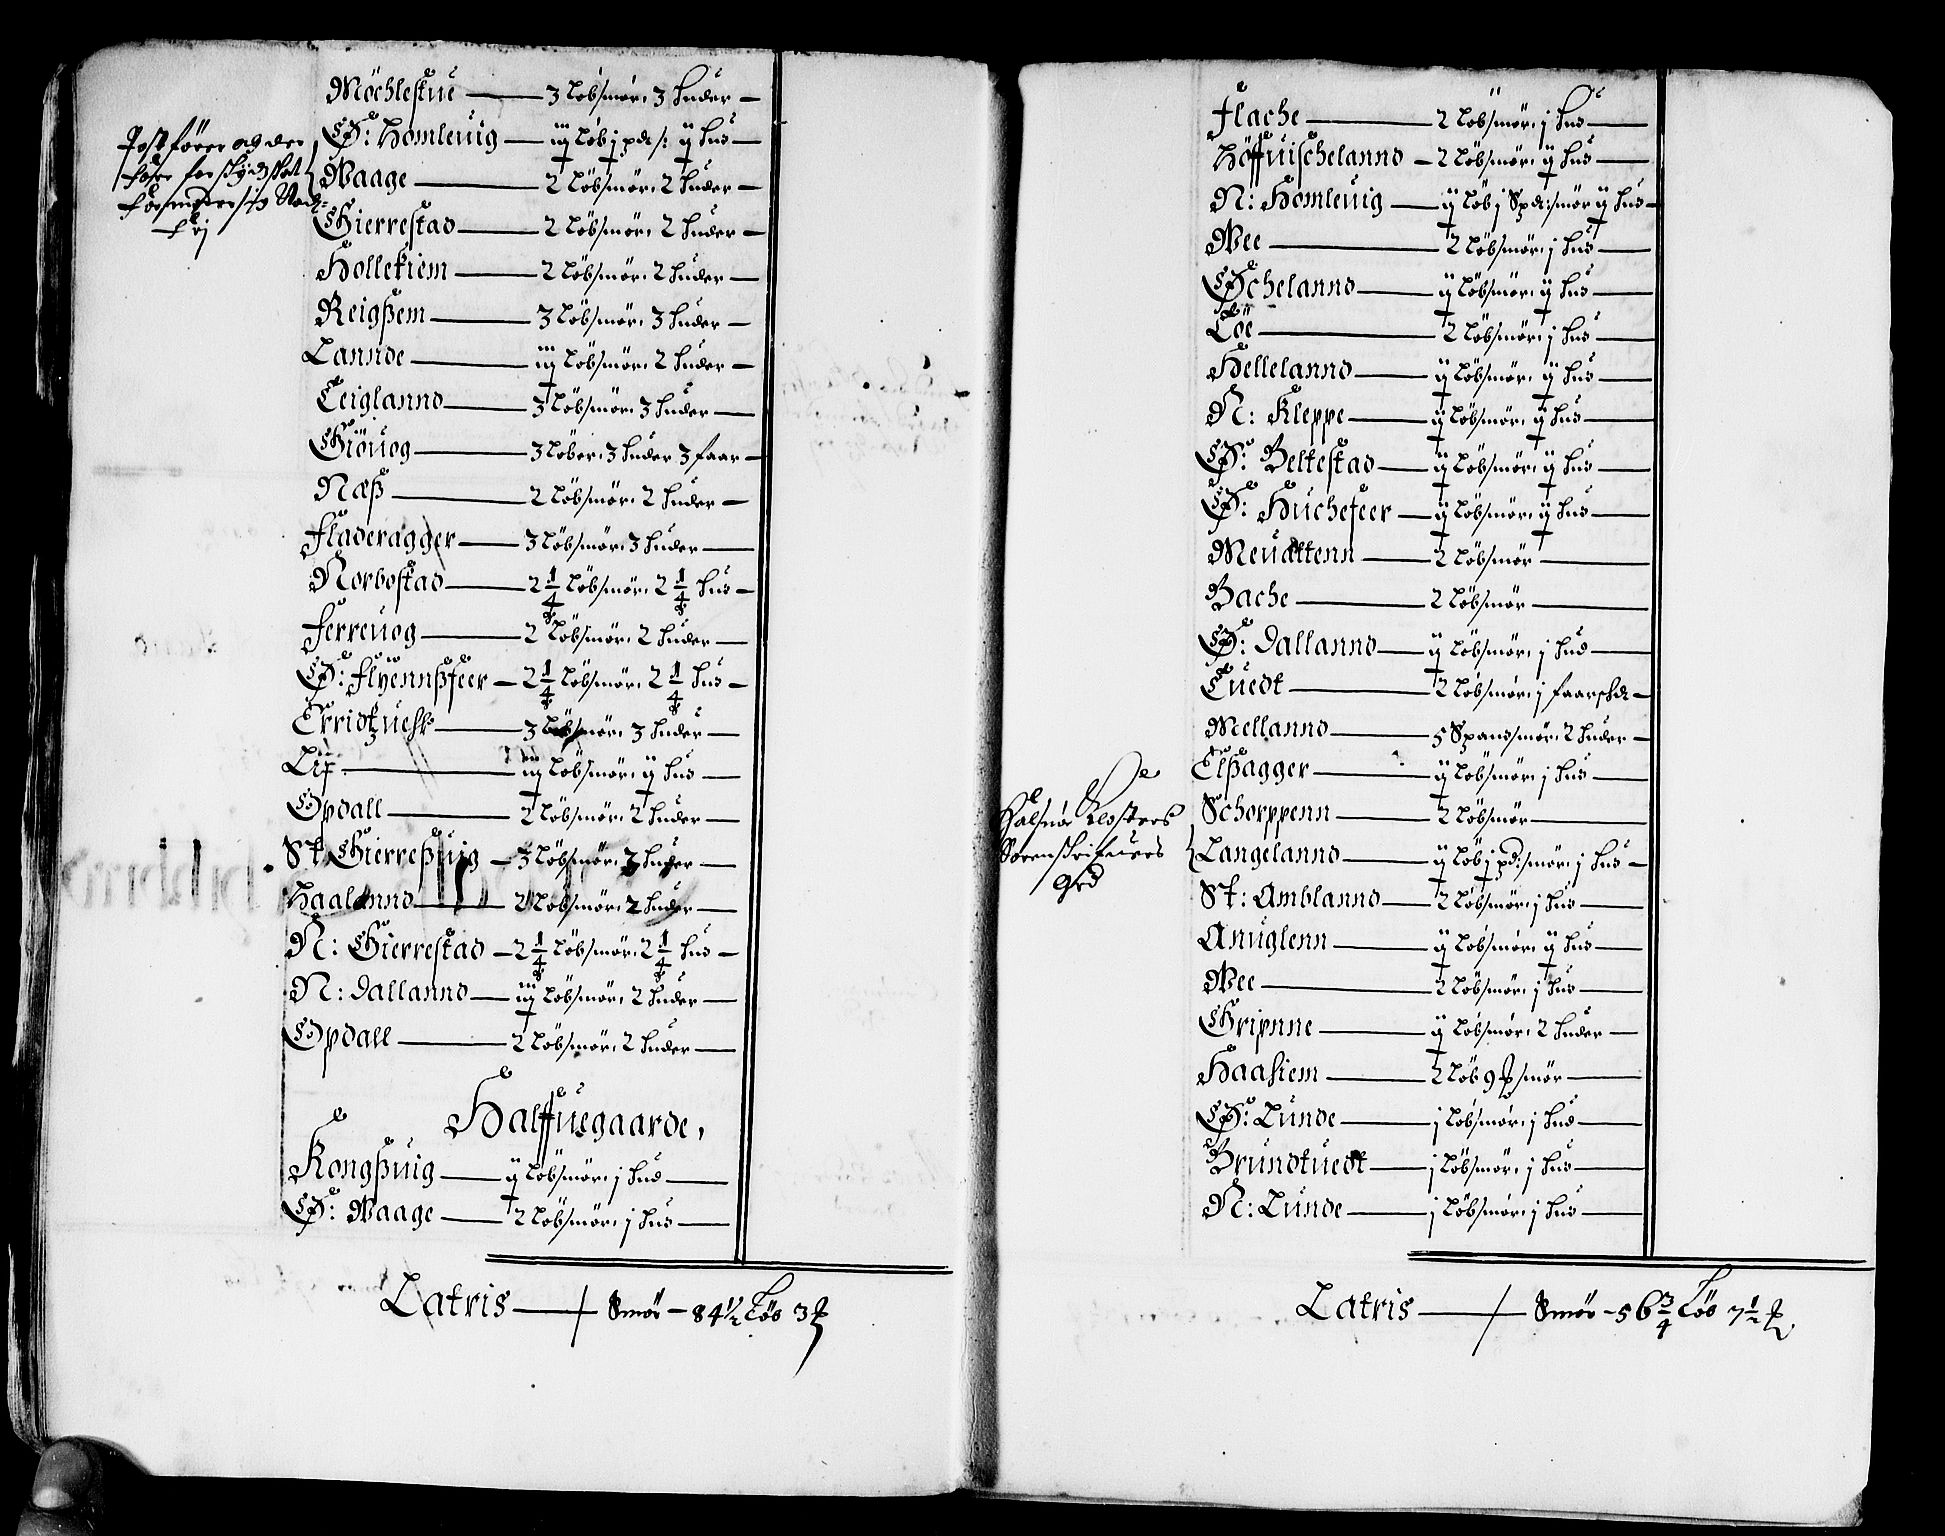 Möchlestue — 3 Löbsmör, 3 huder —
Ø: Homleuig — iij Löb j pd s: ij hud —
Waage — 2 Löbsmör, 2 huder —
Gierrestad — 2 Löbsmör, 2 huder —
Hollekiem — 2 Löbsmör, 2 huder —
Reigßem — 3 Löbsmör, 3 huder —
Lannde — iij Löbsmör, 2 huder —
Teiglannd — 3 Löbsmör, 3 huder —
Giöuog — 3 Löber, 3 huder 3 faar —
Næß — 2 Löbsmör, 2 huder —
Fladeragger — 3 Löbsmör, 3 huder —
Norbostad — 2 1/4 Löbsmör, 2 1/4 hud —
Ferreuog — 2 Löbsmör, 2 huder —
Ø: Flyennßfeer — 2 1/4 Löbsmör, 2 1/4 hud —
3 Löbsmör, 3 huder —
Lif — iij Löbsmör, ij hud —
Opdall — 2 Löbsmör, 2 huder —
St. Gierreßuig — 3 Löbsmör, 3 huder —
Haalannd — 2 Löbsmör, 2 huder —
N: Gierrestad — 2 1/4 Löbsmör, 2 1/4 hud —
N: Dallannd — iij Löbsmör, 2 huder —
Opdall — 2 Löbsmör, 2 huder —
Halffuegaarde,
Kongßuig — ij Löbsmör, j hud —
Ø: Waage — 2 Löbsmör, j hud —
Latris — Smör – 84 1/2 Löb 3
Flache — 2 Löbsmör, j hud —
Höffuischelannd — 2 Löbsmör, ij hud —
N: Homleuig — ij Löb j Spd: smör ij hud —
Wee — 2 Löbsmör, j hud —
Øchelannd — ij Löbsmör, ij hud —
Töe — 2 Löbsmör, j hud —
Hellelannd — ij Löbsmör, ij hud —
N: Kleppe — ij Löbsmör, ij hud —
Ø: Beltestad — ij Löbsmör, ij hud —
Ø: Huchefeer — ij Löbsmör, ij hud —
Meuattenn — 2 Löbsmör —
Bache — 2 Löbsmör —
Ø: Dallannd — ij Löbsmör, j hud —
Tuedt — 2 Löbsmör, j
Mellannd — 5 Spandsmör, 2 huder —
Elßagger — ij Löbsmör, j hud —
Schorppenn — 2 Löbsmör —
Halsnøe Closters
Sorenskrifuers
grd
Langelannd — ij Löb j pd: smör, j hud —
St: Amblannd — 2 Löbsmör, j hud —
Anuglenn — ij Löbsmör, ij hud —
Wee — 2 Löbsmör, j hud —
Gripnne — ij Löbsmör, 2 huder —
Haahiem — 2 Löb 9 smör —
Ø: Lunde — j Löbsmör, j hud —
Brundtuedt — j Löbsmör, j hud —
N: Lunde — j Löbsmör, j hud —
Latris — Smör – 56 3/4 Löb 7 1/2